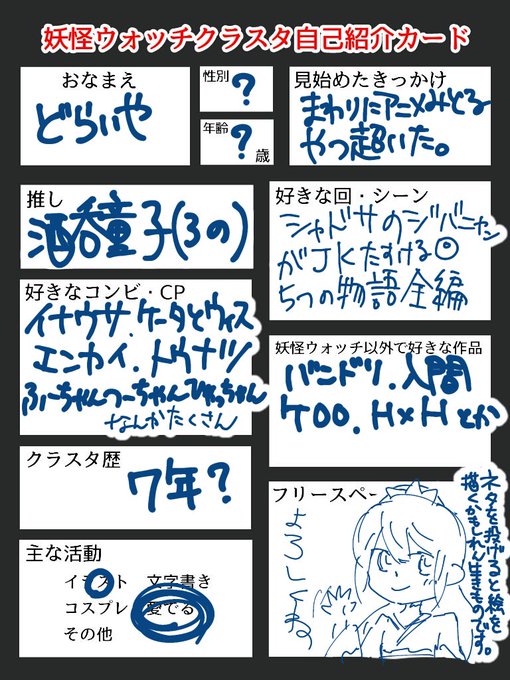 妖怪ウォッチクラスタ自己紹介カード
おなまえ
どらいや
性別
?
年齢
?
歳
見始めたきっかけ
まわりにアニメみとる
やつ超いた。
推し
酒呑童子(3の)
好きな回・シーン
シャドサのジバニャン
がJKたすける◎
5つの物語全編
好きなコンビ・CP
イナウサ.ケータとウィス
エンカイ.トウナツ
ふーちゃんつーちゃんひゃっちゃん
なんかたくさん
妖怪ウォッチ以外で好きな作品
バンドリ.人間
クラスタ歴
7年?
主な活動
イラスト 文字書き
コスプレ 愛でる
その他
フリースペー
よろしくね
ネタを投げると絵を
描くかもしれん生きものです。